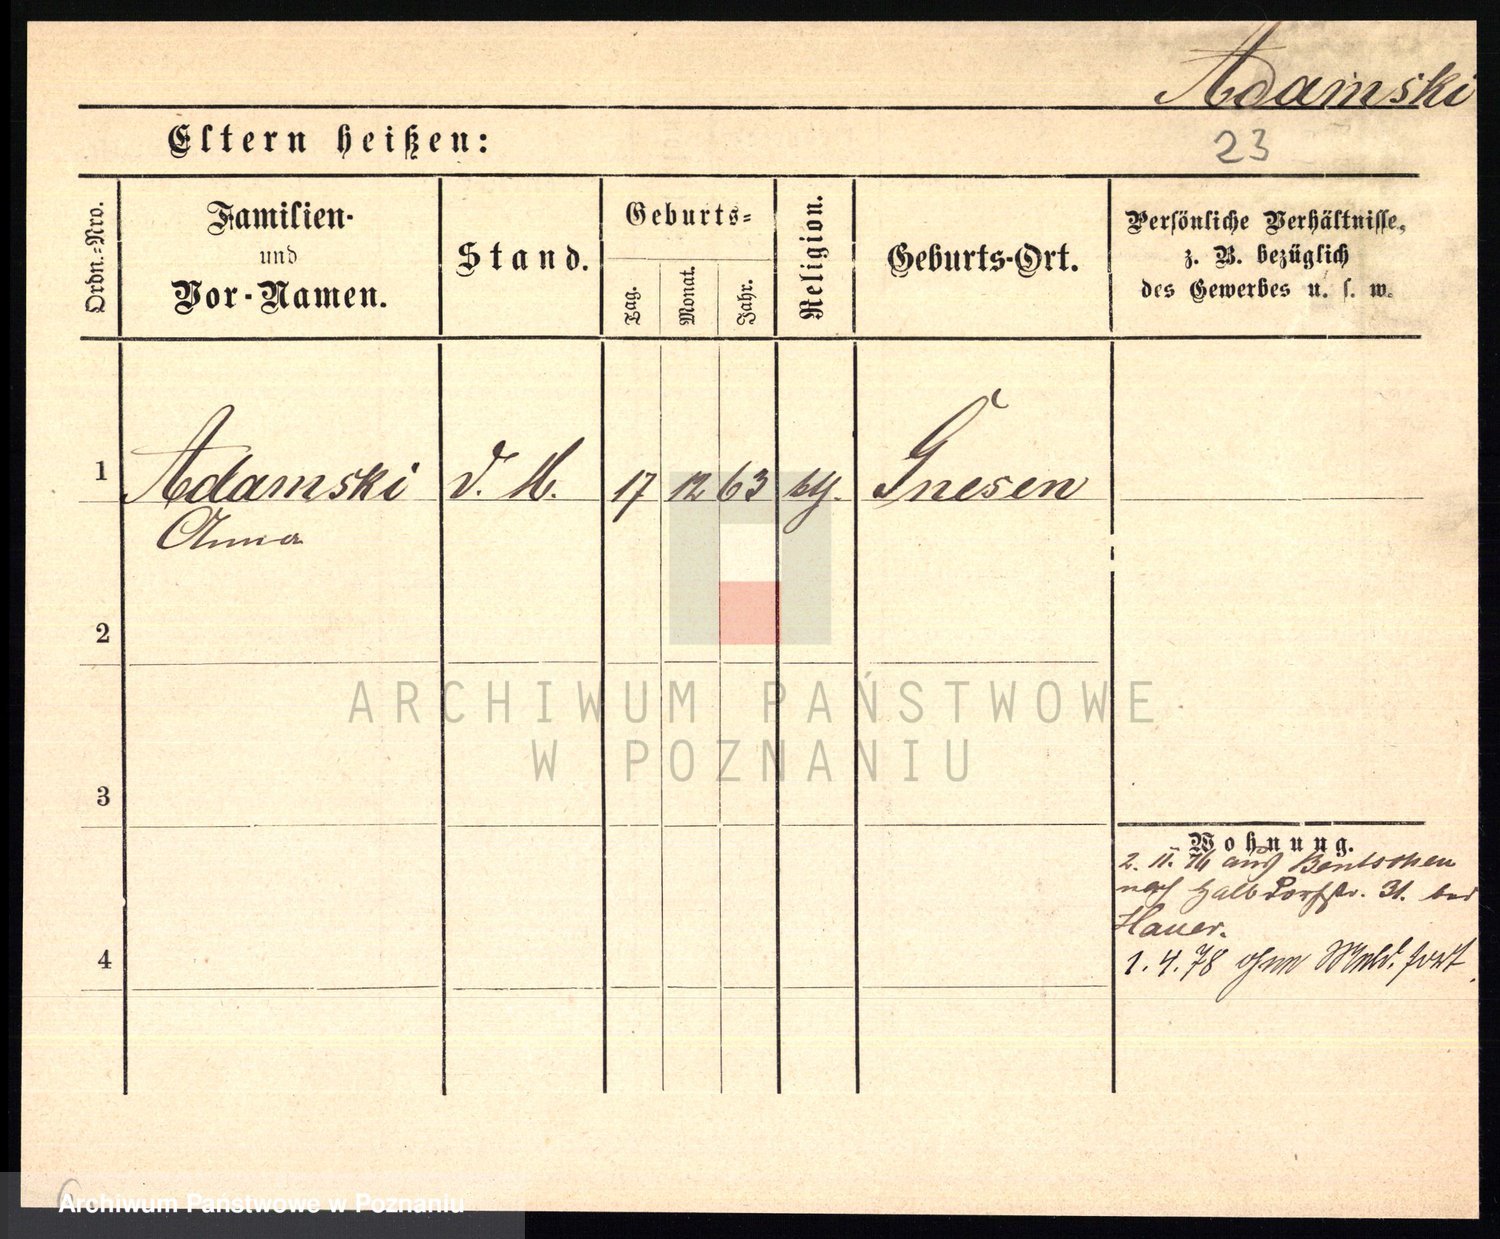 Adamski
Eltern heißen:
23
Ordn.-Nro.
Familien-
und
Vor-Namen.
Stand.
Geburts-
Tag.
Monat.
Jahr.
Religion.
Geburts-Ort.
Persönliche Verhältnisse,
z. B. bezüglich
des Gewerbes u. s. w.
1
Adamski
d. M.
17
12
63
Gnesen
Anna
2
ARCHIWUM PAŃSTWOWE
W POZNANIU
3
Wohnung.
2. 11. 76 aus Bentschen
nach Halbdorfstr. 31. bei
Hauer.
4
1. 4. 78 ohne Meld. fort
Archiwum Państwowe w Poznaniu